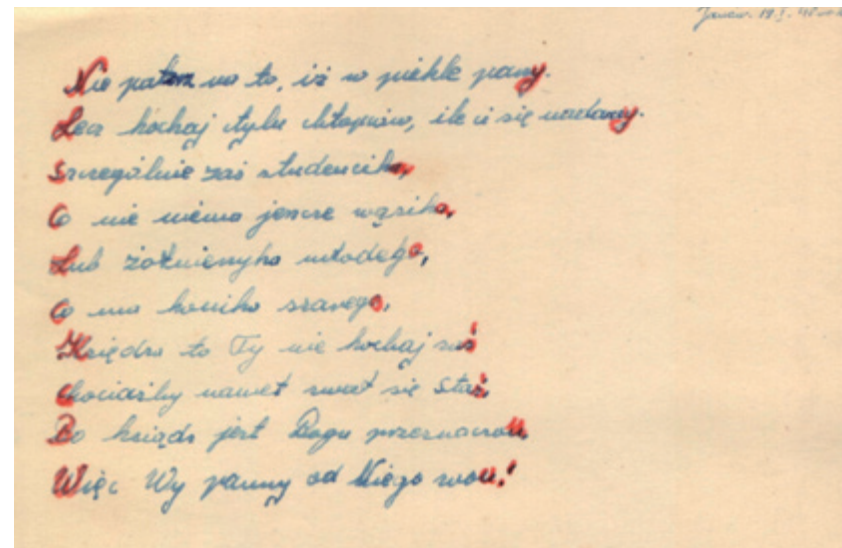 Janów. 19.I.
Nie patrz na to, iż w piekle pary.
Lecz kochaj tylu chłopców, ile ci się
Szczególnie zaś studencika,
Co nie niema jeszcze wąsika,
Lub żołnierzyka młodego,
Co ma konika szarego,
Księdza to Ty nie kochaj zaś
chociażby nawet zwał się Staś,
Bo ksiądz jest Bogu przeznaczon,
Więc Wy panny od Niego won!